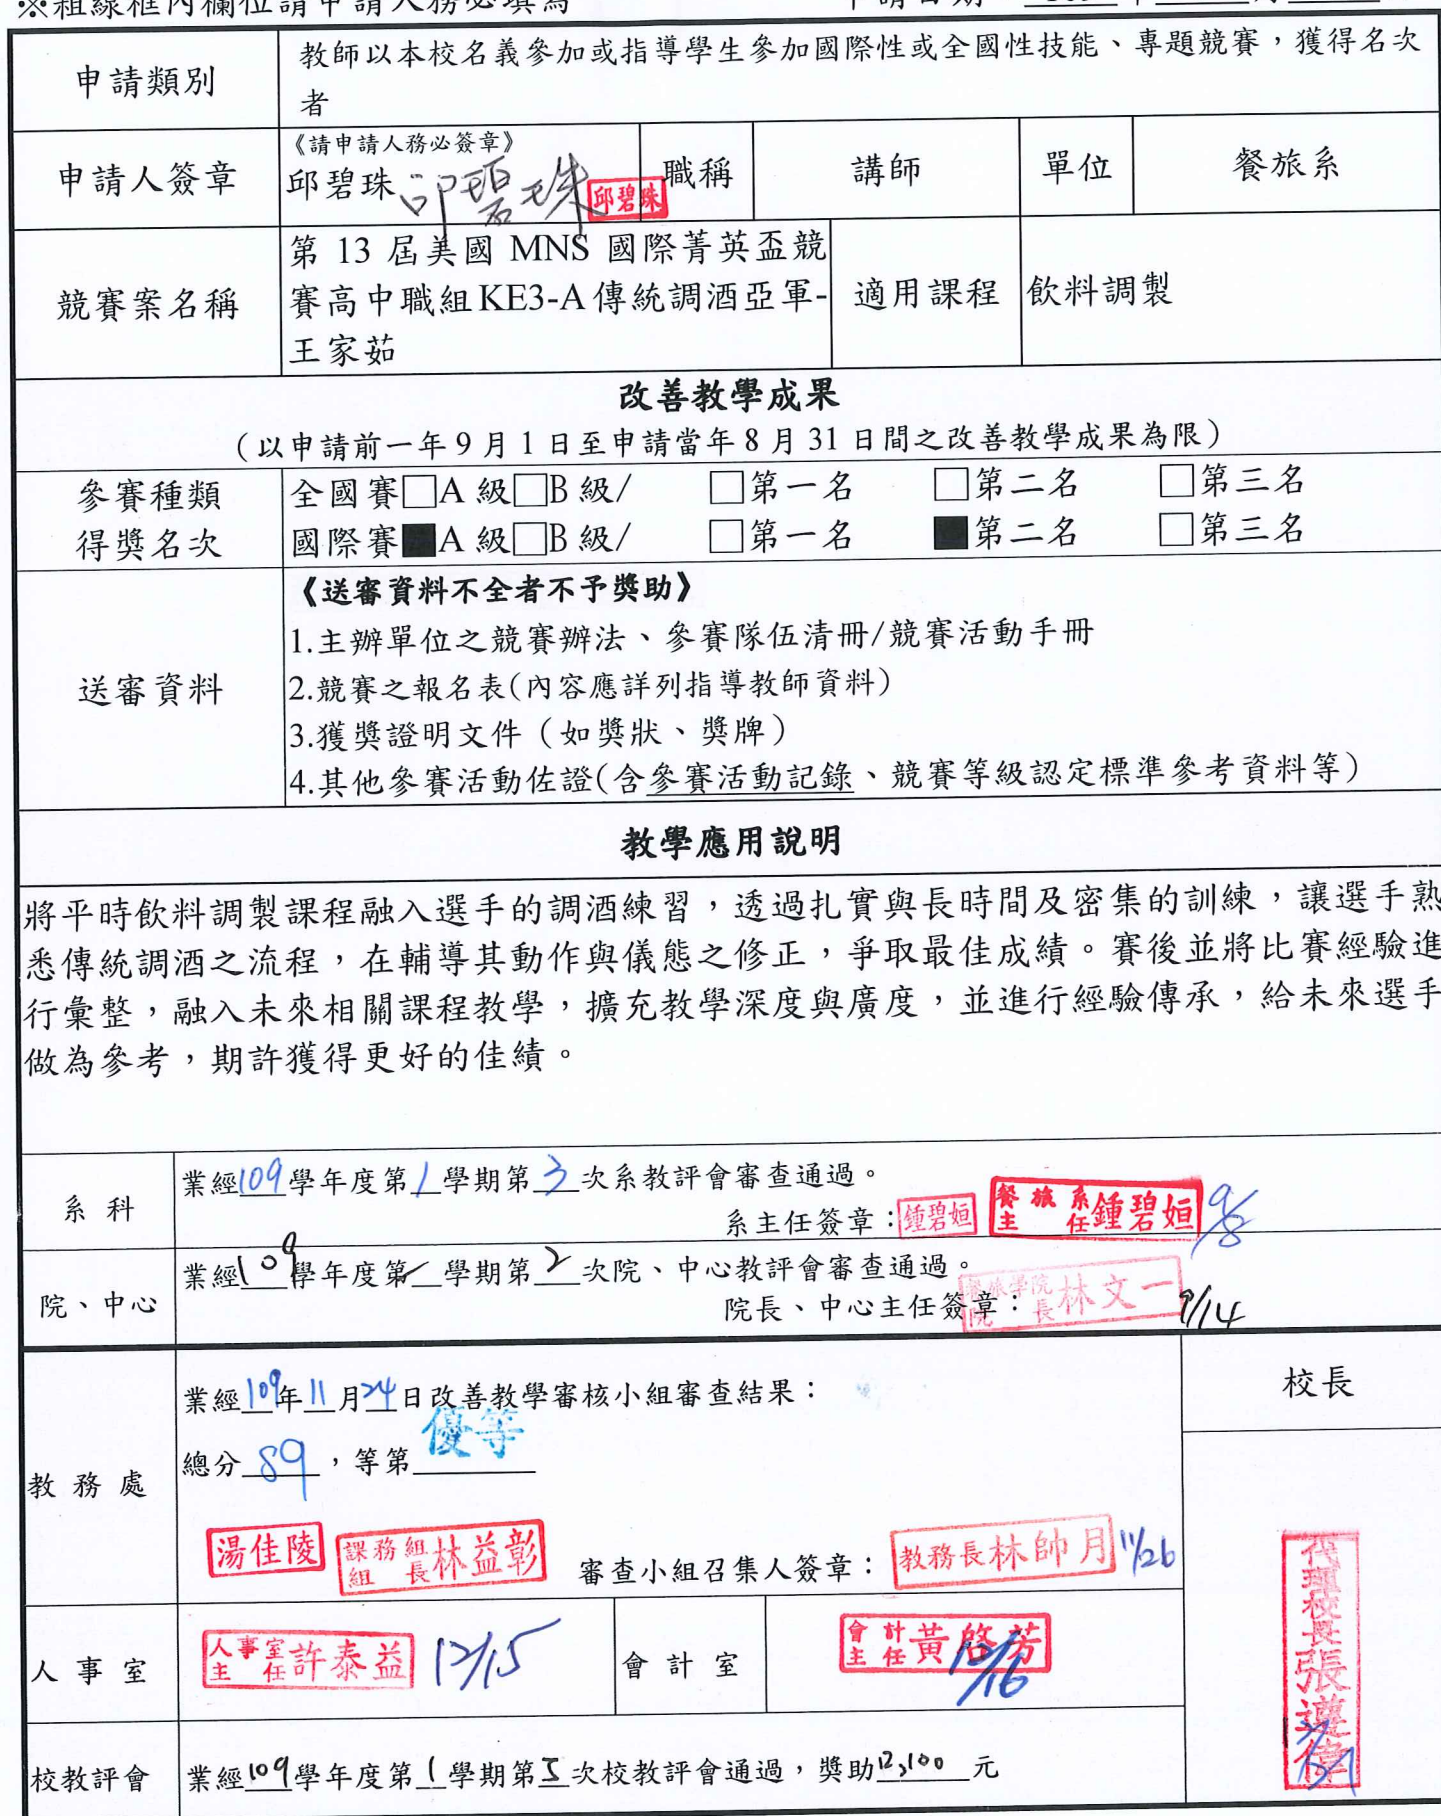 ※粗線框內欄位請申請人務必填寫
申請類別
教師以本校名義參加或指導學生參加國際性或全國性技能、專題競賽，獲得名次
者
申請人簽章
《請申請人務必簽章》
邱碧珠 邱碧珠 邱碧珠
職稱
講師
單位
餐旅系
競賽案名稱
第 13 屆美國 MNS 國際菁英盃競
賽高中職組KE3-A傳統調酒亞軍-
王家茹
適用課程
飲料調製
改善教學成果
（以申請前一年9月1日至申請當年8月31日間之改善教學成果為限）
參賽種類
得獎名次
全國賽□A 級□B 級/ □第一名 □第二名 □第三名
國際賽■A 級□B 級/ □第一名 ■第二名 □第三名
送審資料
《送審資料不全者不予獎助》
1.主辦單位之競賽辦法、參賽隊伍清冊/競賽活動手冊
2.競賽之報名表(內容應詳列指導教師資料)
3.獲獎證明文件（如獎狀、獎牌）
4.其他參賽活動佐證(含參賽活動記錄、競賽等級認定標準參考資料等)
教學應用說明
將平時飲料調製課程融入選手的調酒練習，透過扎實與長時間及密集的訓練，讓選手熟
悉傳統調酒之流程，在輔導其動作與儀態之修正，爭取最佳成績。賽後並將比賽經驗進
行彙整，融入未來相關課程教學，擴充教學深度與廣度，並進行經驗傳承，給未來選手
做為參考，期許獲得更好的佳績。
系科
業經109學年度第1學期第3次系教評會審查通過。
系主任簽章：鍾碧姮 餐旅系主任鍾碧姮 9/8
院、中心
業經109學年度第1學期第2次院、中心教評會審查通過。
院長、中心主任簽章：餐旅學院院長林文一 9/14
教務處
業經109年11月24日改善教學審核小組審查結果：
總分89，等第優等
湯佳陵 課務組組長林益彰 審查小組召集人簽章：教務長林帥月 11/26
校長
代理校長張遵偉
人事室
人事室主任許泰益 12/15
會計室
會計主任黃啓芳 12/16
校教評會
業經109學年度第1學期第5次校教評會通過，獎助12,100元